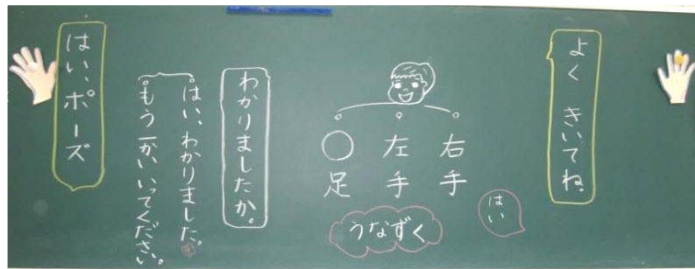 よく きいてね。
はい
右手
左手
○足
うなずく
わかりましたか。
はい、わかりました。
もう一かいいってください。
はい、ポーズ